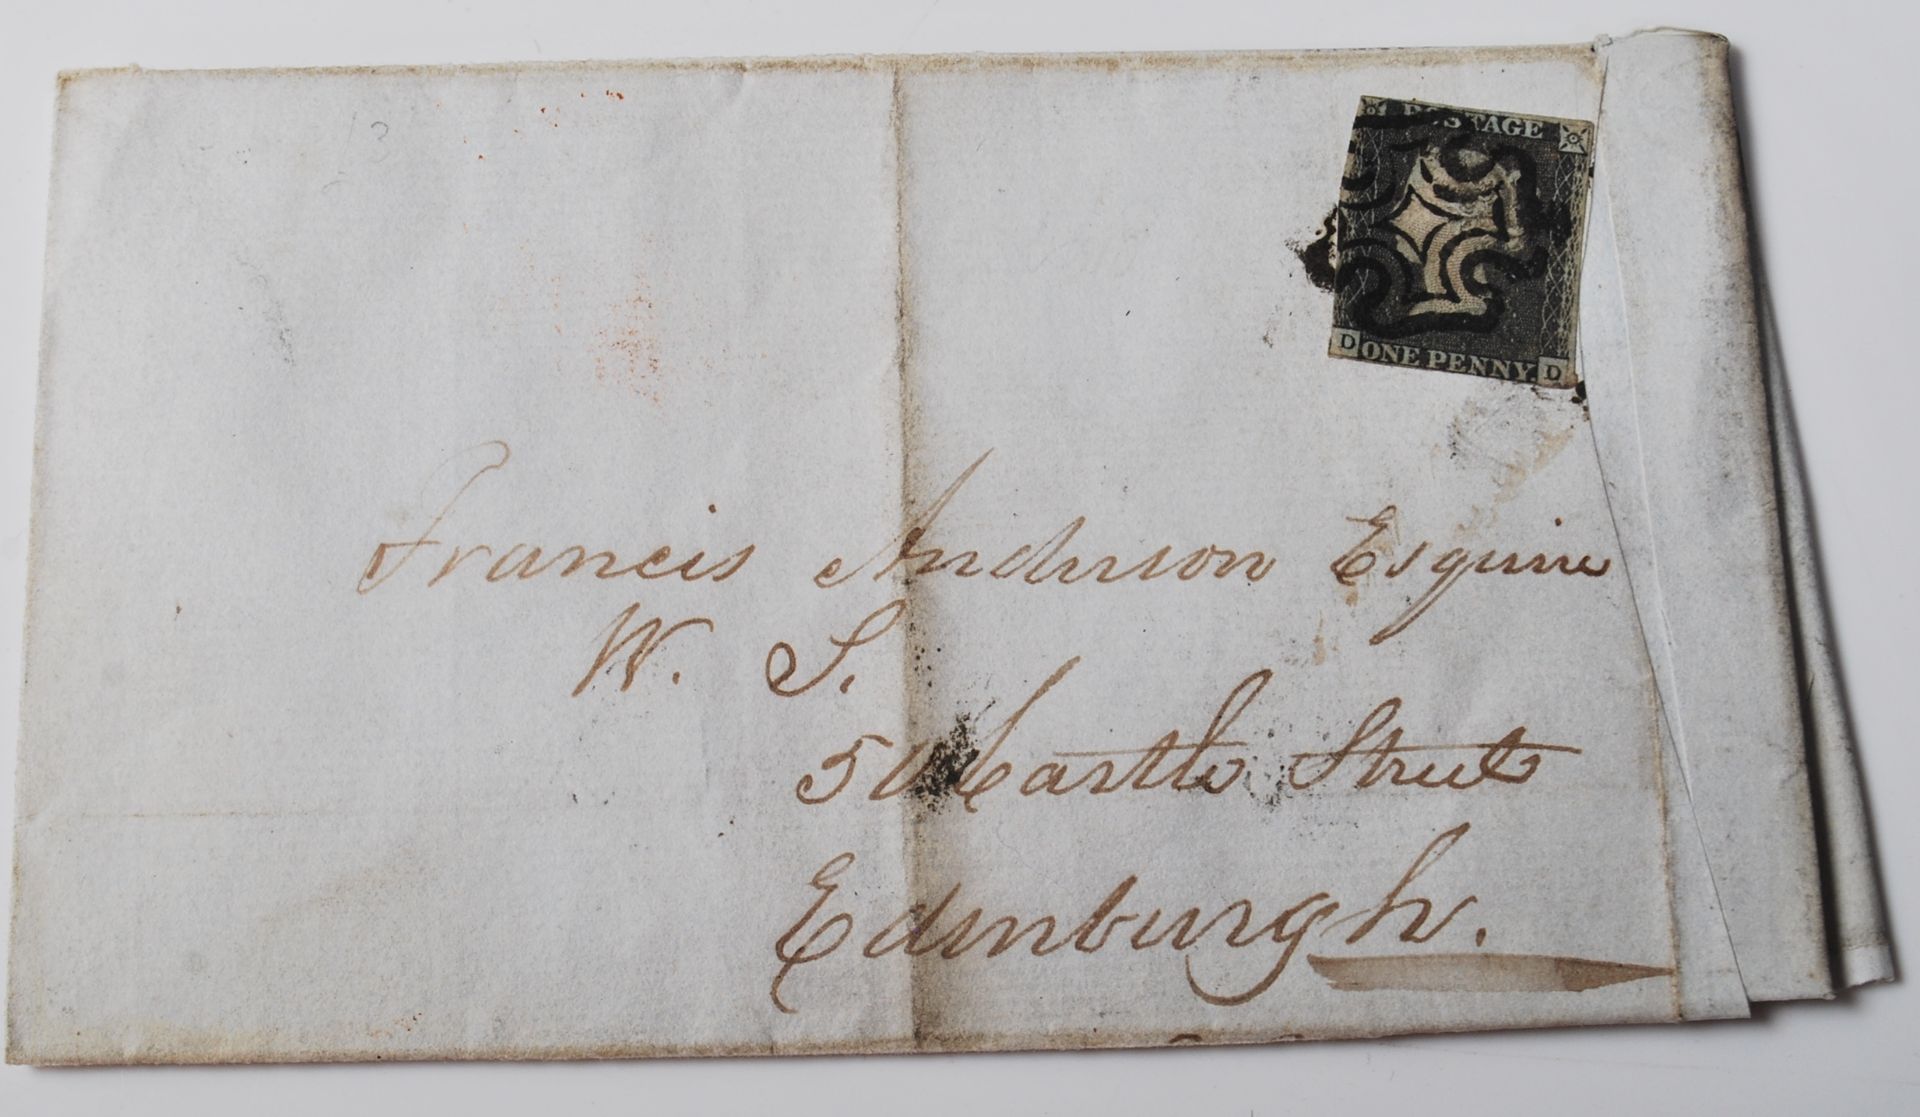 13
POSTAGE
D ONE PENNY. D
Francis Anderson Esquire
W. S.
50 Castle Street
Edinburgh.